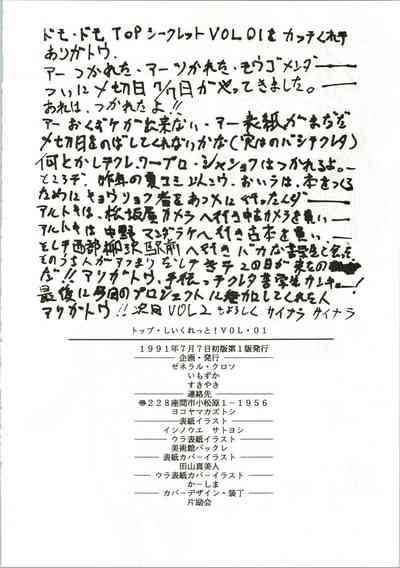 ドモ・ドモ、TOPシークレットVOL01をカッテくれて
ありがトウ.
アーつかれた・アーツかれた・モウゴメンダー
ついに〆切日7/7日がやってきました。
おれは、つかれたよ!!
アーおくずケが出来ない・アー表紙がまだだ
〆切日をのばしてくれないかな(実はのバシテクレタ)
何とかしテクレ.ワープロ・シャショクはつかれるよ。
ところデ、昨年の夏コミ以ンコウ、おいうは、本をつくる
ためにキョウリョク者をあつメに行ったんダー
アルトキは、松坂屋カメラへ行き中古カメラを買い
アルトキは中野マンダラケへ行き古本を買い、
そしテ西部柳沢駅前へ行きバカな書学生と会った
そのうち人がアつまり
だ!!アリガトウ、手伝ってクレタ書学生カンキー!
最后に今回のプロジェクトに参加してくれた人
アリガトウ!!次回VOL2もよろしくサイナラサイナラ
トップ・しいくれっと!VOL・01
1991年7月7日初版第1版発行
企画・発行
ゼネラル・クロソ
いもずか
すきやき
連絡先
〠228座間市小松原1−1956
ヨコヤマカズトシ
表紙イラスト
イシノウエ サトヨシ
ウラ表紙イラスト
美術館バックレ
表紙カバーイラスト
田山真美人
ウラ表紙カバーイラスト
かーしま
カバーデザイン・装丁
片励会